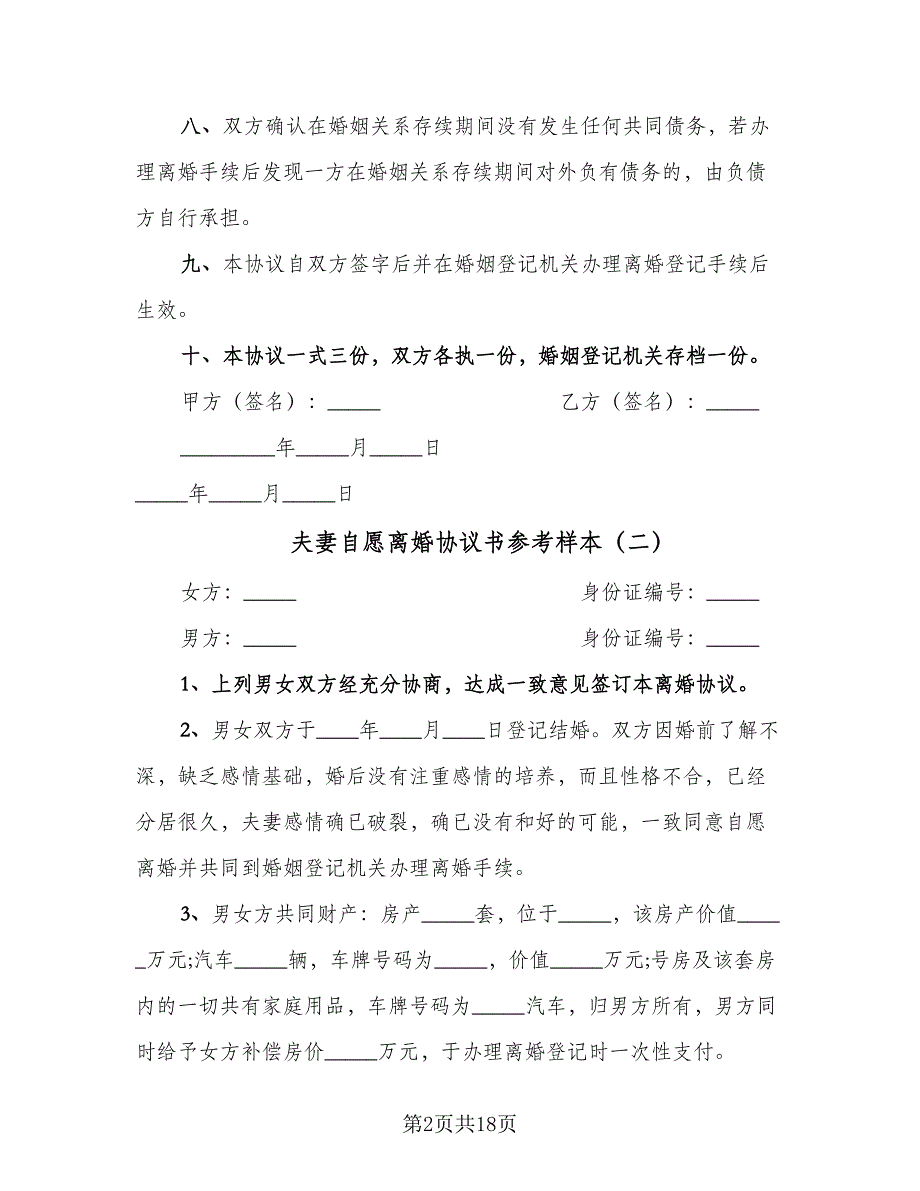 八、双方确认在婚姻关系存续期间没有发生任何共同债务，若办
理离婚手续后发现一方在婚姻关系存续期间对外负有债务的，由负债
方自行承担。
九、本协议自双方签字后并在婚姻登记机关办理离婚登记手续后
生效。
十、本协议一式三份，双方各执一份，婚姻登记机关存档一份。
甲方（签名）：_____ 乙方（签名）：_____
_________年_____月_____日
_____年_____月_____日
夫妻自愿离婚协议书参考样本（二）
女方：_____ 身份证编号：_____
男方：_____ 身份证编号：_____
1、上列男女双方经充分协商，达成一致意见签订本离婚协议。
2、男女双方于____年____月____日登记结婚。双方因婚前了解不
深，缺乏感情基础，婚后没有注重感情的培养，而且性格不合，已经
分居很久，夫妻感情确已破裂，确已没有和好的可能，一致同意自愿
离婚并共同到婚姻登记机关办理离婚手续。
3、男女方共同财产：房产_____套，位于_____，该房产价值____
_万元;汽车_____辆，车牌号码为_____，价值_____万元;号房及该套房
内的一切共有家庭用品，车牌号码为_____汽车，归男方所有，男方同
时给予女方补偿房价_____万元，于办理离婚登记时一次性支付。
第2页共18页